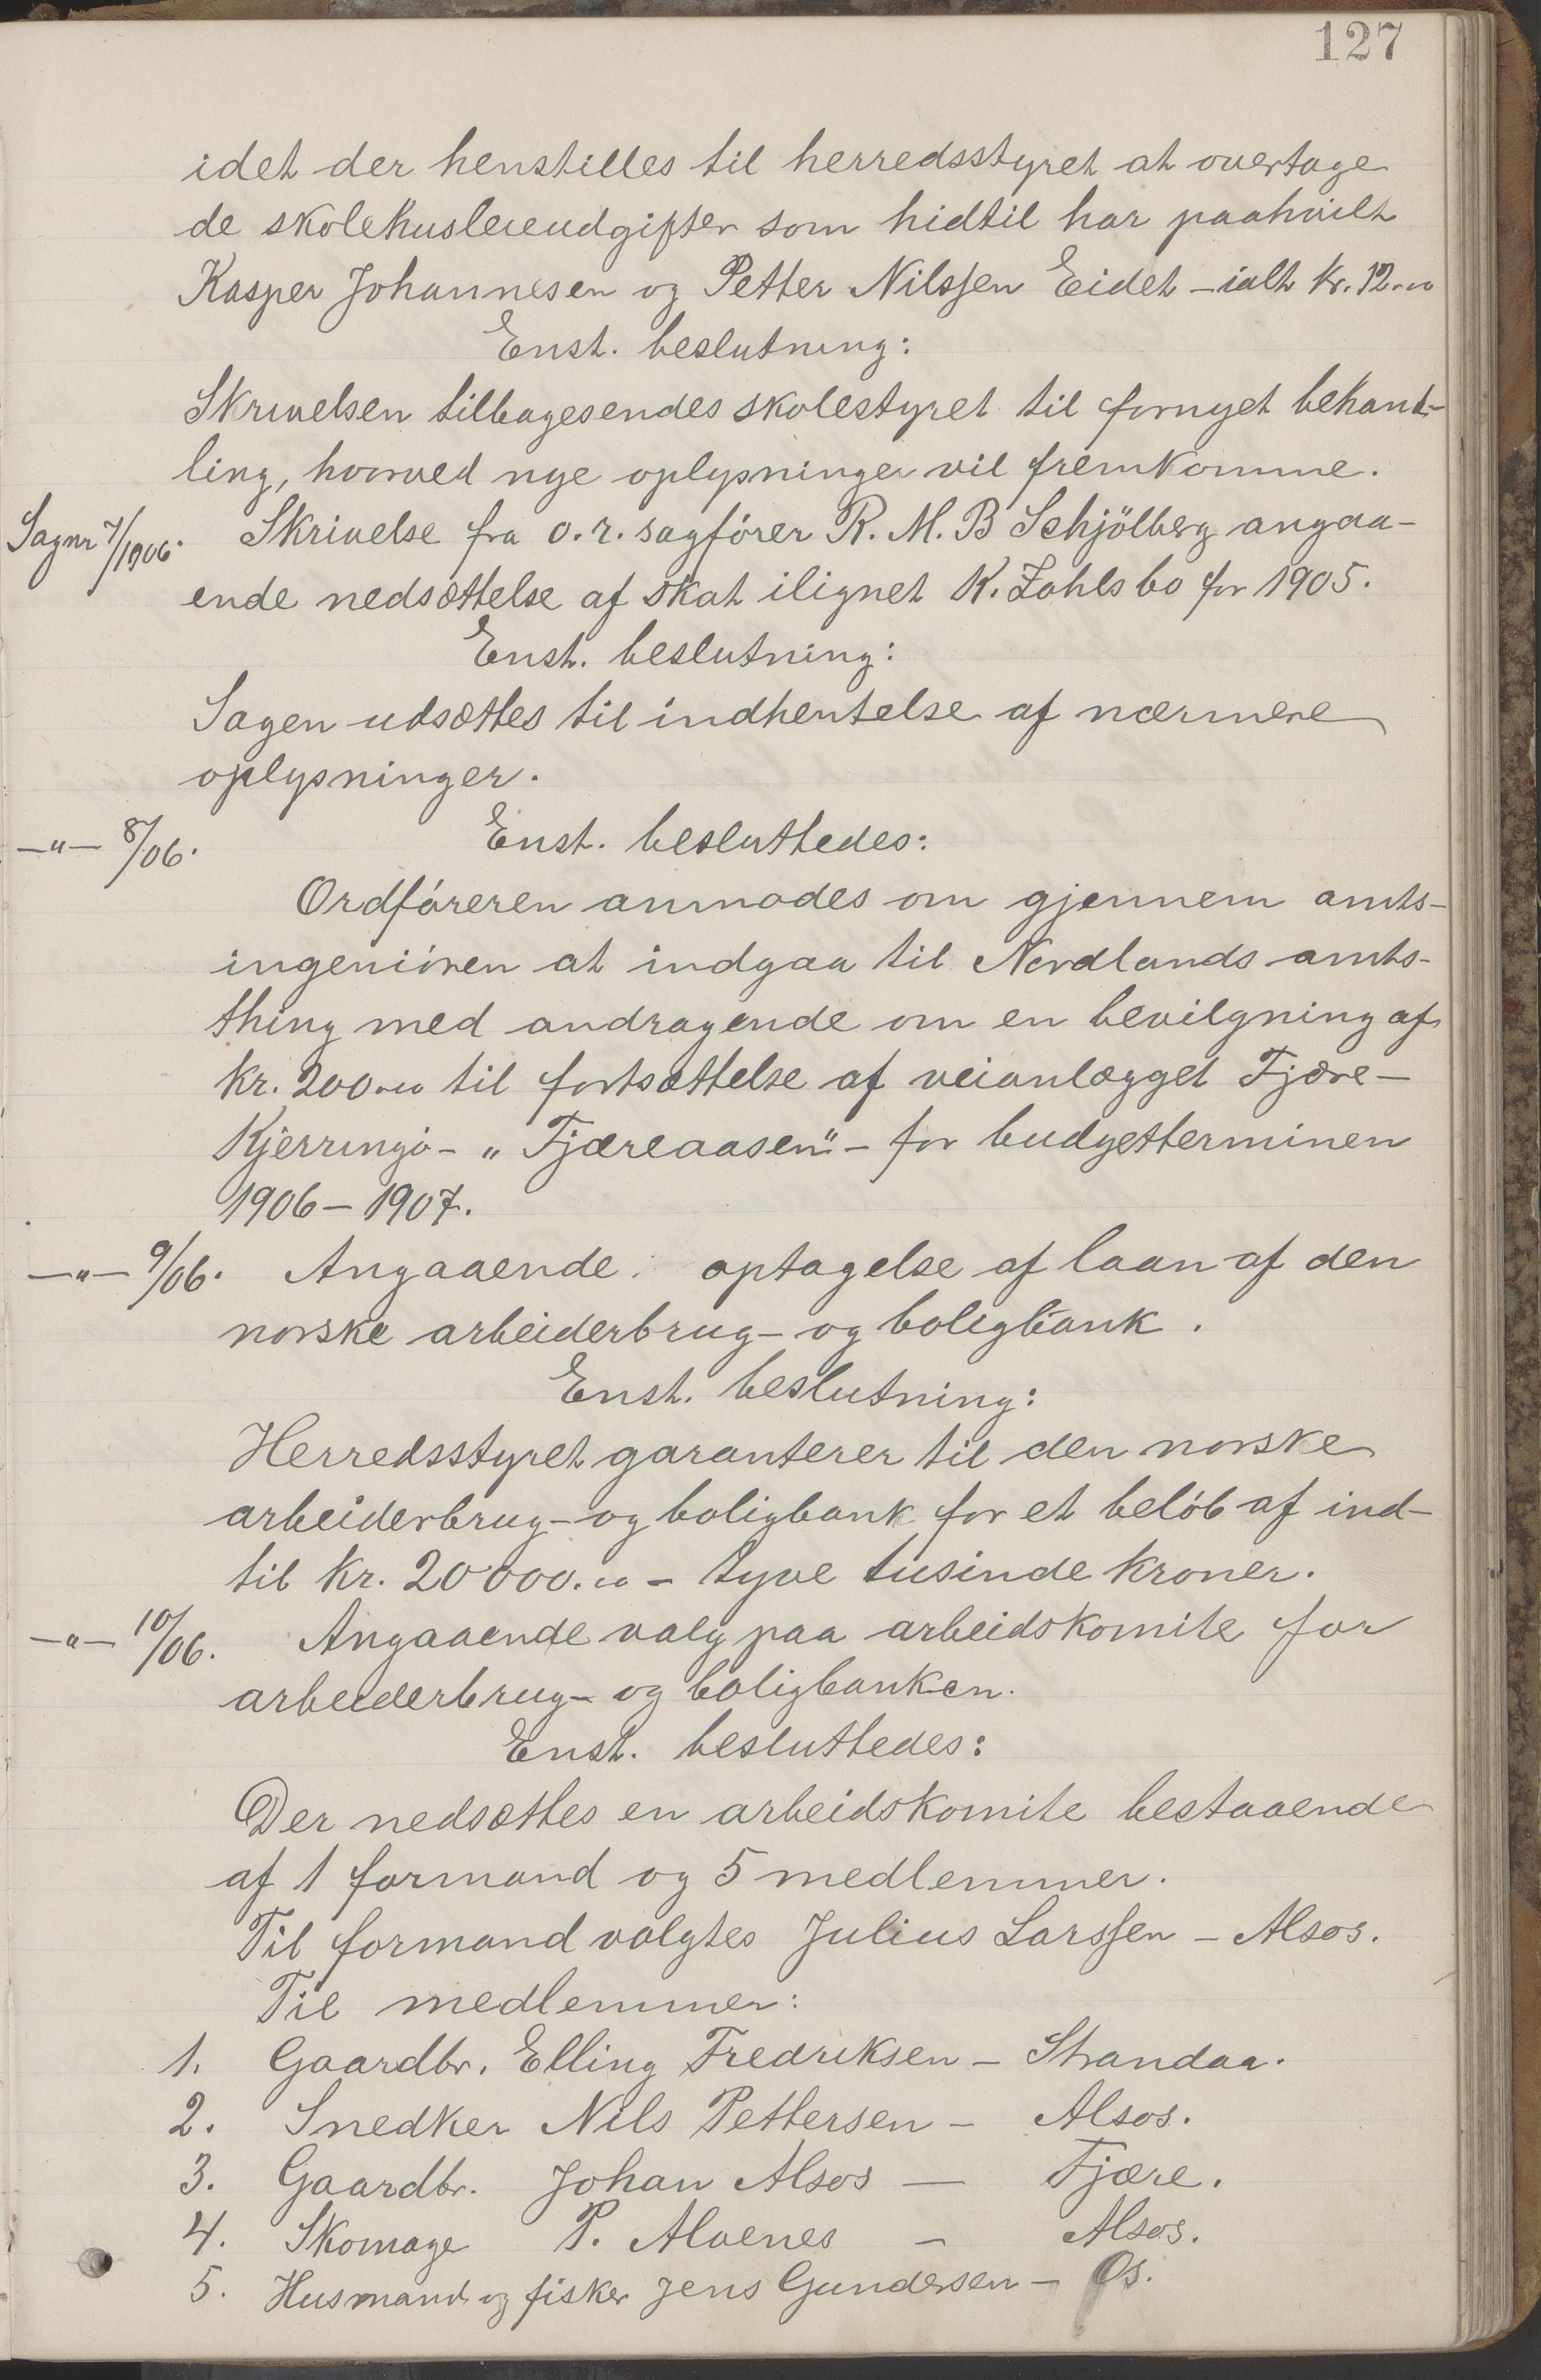 127
idet der henstilles til herredsstyret at overtage
de skolehusleieudgifter som hidtil har paahvilt
Kasper Johannesen og Petter Nilssen Eidet – ialt kr. 12.00
Enst. beslutning:
Skrivelsen tilbagesendes skolestyret til fornyet behand-
ling, hvorved nye oplysninger vil fremkomme.
Sagnr 7/1906. Skrivelse fra o.r. sagfører R. M. B Schjölberg angaa-
ende nedsættelse af skat ilignet K. Zahls bo for 1905.
Enst. beslutning:
Sagen udsættes til indhentelse af nærmere
oplysninger.
–"– 8/06. Enst. besluttedes:
Ordføreren anmodes om gjennem amts-
ingeniøren at indgaa til Nordlands amts-
thing med andragende om en bevilgning af
kr. 200.00 til fortsættelse af veianlægget Fjære–
Kjerringø – "Fjæreaasen" – for budgetterminen
1906 – 1907.
–"– 9/06. Angaaende optagelse af laan af den
norske arbeiderbrug- og boligbank.
Enst. beslutning:
Herredsstyret garanterer til den norske
arbeiderbrug- og boligbank for et beløb af ind-
til kr. 20000.00 – tyve tusinde kroner.
–"– 10/06. Angaaende valg paa arbeidskomite for
arbeiderbrug- og boligbanken.
Enst. besluttedes:
Der nedsættes en arbeidskomite bestaaende
af 1 formand og 5 medlemmer.
Til formand valgtes Julius Larssen – Alsos.
Til medlemmer:
1. Gaardbr. Elling Fredriksen – Strandaa.
2. Snedker Nils Pettersen – Alsos.
3. Gaardbr. Johan Alsos – Fjære.
4. Skomage P. Alvenes – Alsos.
5. Husmand og fisker Jens Gundersen – Os.